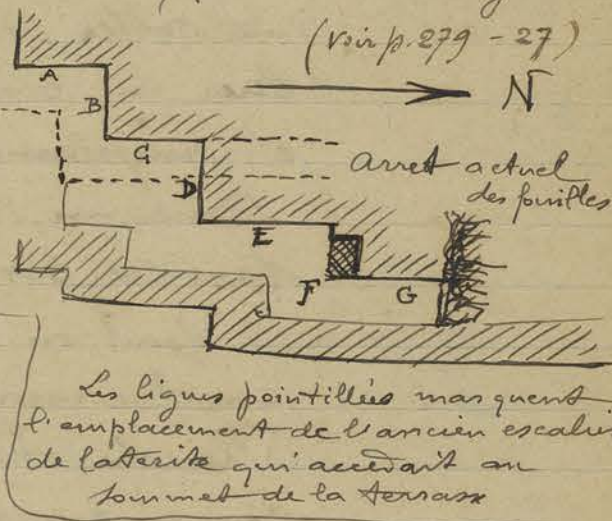 (voir p. 279 - 27)
N
A
B
C
D
arret actuel
des fouilles
E
F
G
Les lignes pointillées marquent
l'emplacement de l'ancien escalier
de laterite qui accédait au
sommet de la terrasse